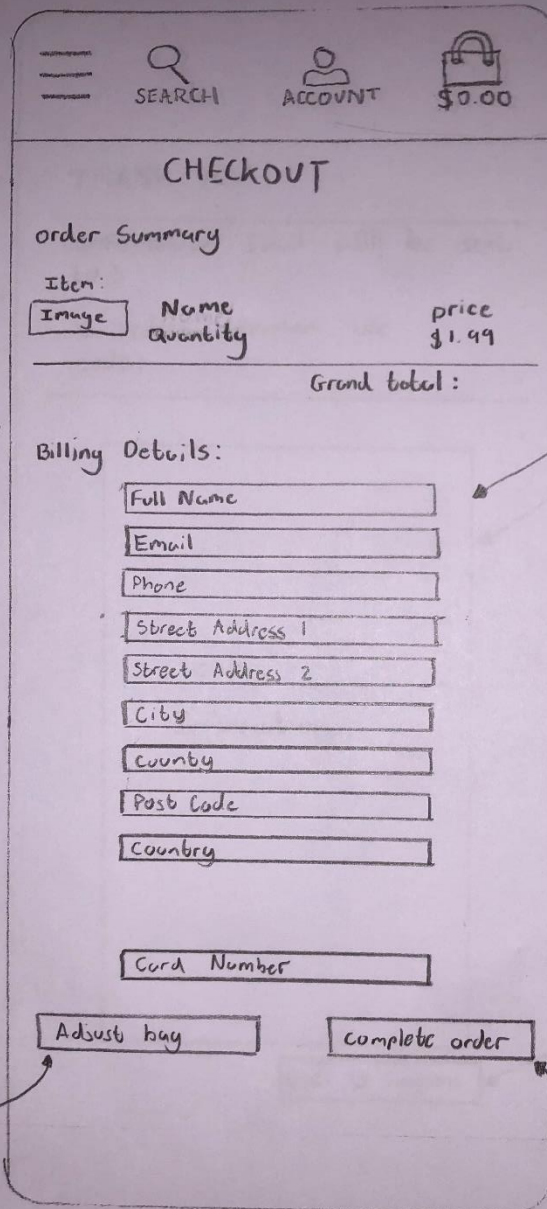 SEARCH ACCOUNT $0.00
CHECKOUT
Order Summary
Item:
Image Name price
Quantity $1.99
Grand total:
Billing Details:
Full Name
Email
Phone
Street Address 1
Street Address 2
City
County
Post Code
Country
Card Number
Adjust bag Complete order